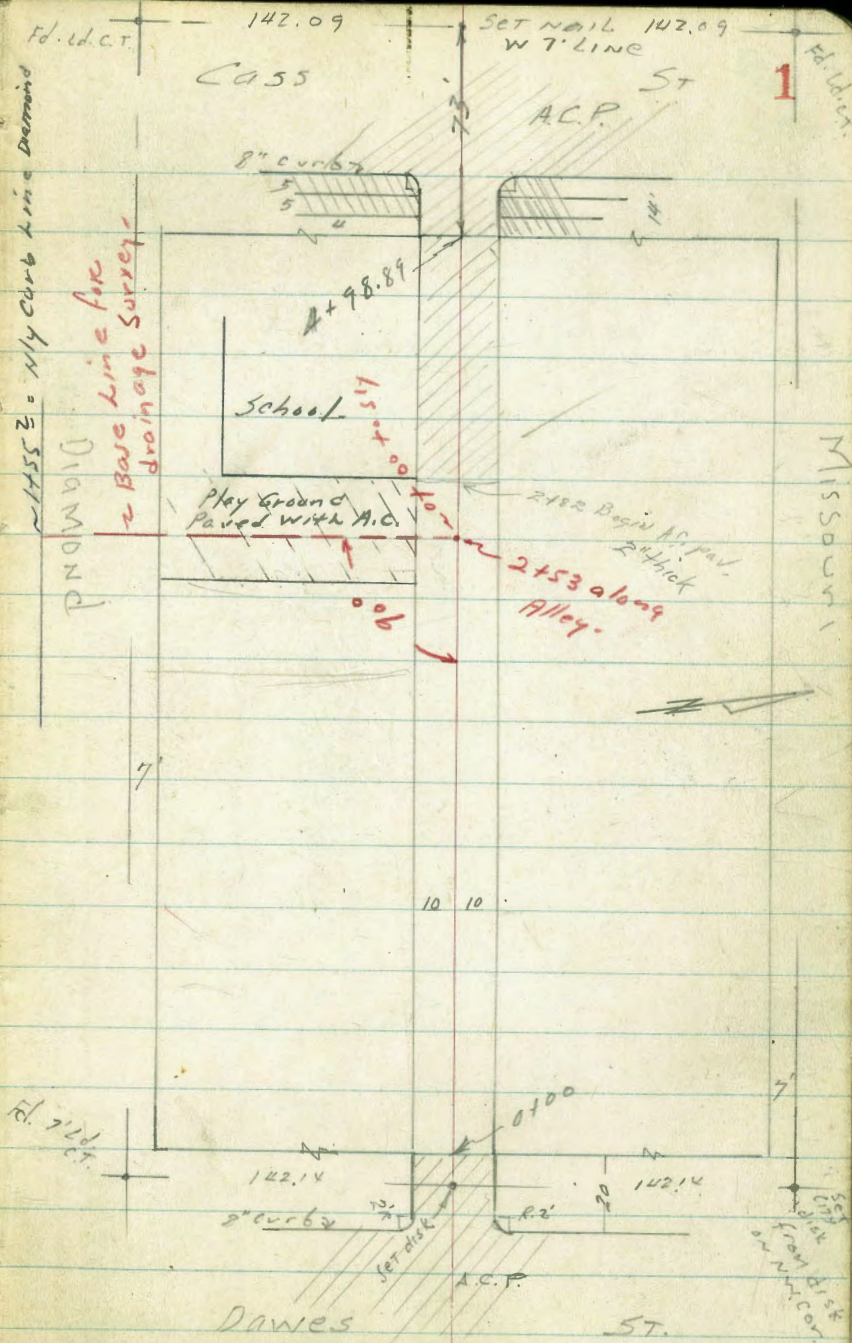 142.09
SET NAIL 142.09
W 7' LINE
Fd. Ld. C.T.
Cass
ST
1
73'
A.C.P.
8" curb
5
5
4
14'
4+98.89
~1+55 = N'ly Curb Line Diamond
~ Base Line for
drainage Survey-
Diamond
School
Play Ground
Paved with A.C.
2+82 Begin A.C. pav.
2" thick
2+53 along
Alley-
90°
Missouri
7'
10 10
7'
0+00
Fd. 7' Ld.
C.T.
142.14
142.14
20
8" curb
2'R
R.2'
Set disk
Set
City
disk
from disk
on N.W. Cor.
A.C.P.
Dawes
ST.